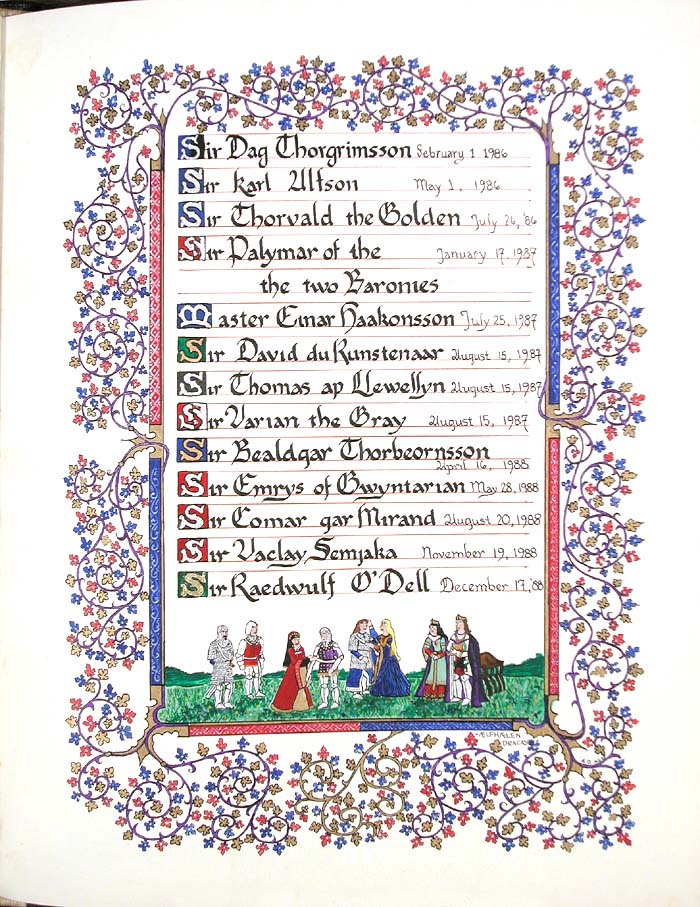 Sir Dag Thorgrimsson February 1 1986
Sir Karl Ulfson May 1, 1986
Sir Thorvald the Golden July 26, '86
Sir Palymar of the January 17, 1987
the two Baronies
Master Einar Haakonsson July 25, 1987
Sir David du Kunstenaar August 15, 1987
Sir Thomas ap Llewellyn August 15, 1987
Sir Varian the Gray August 15, 1987
Sir Bealdgar Thorbeornsson
April 16, 1988
Sir Emrys of Gwyntarian May 28, 1988
Sir Comar gar Mirand August 20, 1988
Sir Vaclav Semjaka November 19, 1988
Sir Raedwulf O'Dell December 17, '88